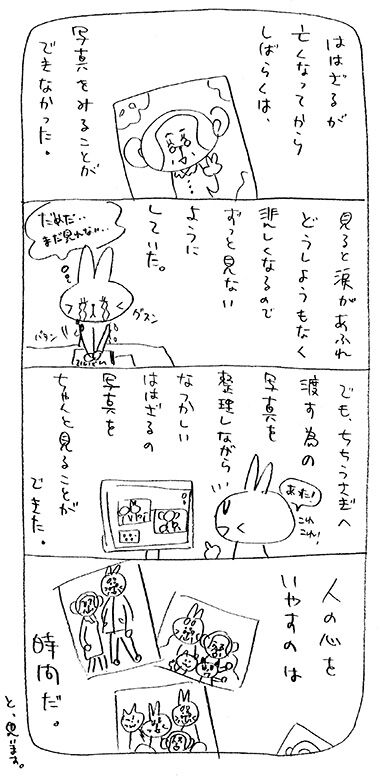 ははざるが
亡くなってから
しばらくは、
写真をみることが
できなかった。
見ると涙があふれ
どうしようもなく
悲しくなるので
ずっと見ない
ように
していた。
だめだ‥
まだ見れない‥
グスン
パタン
でも、ちちうさぎへ
渡す為の
写真を
整理しながら
なつかしい
ははざるの
写真を
ちゃんと見ることが
できた。
あれ!
これ
これ!
人の心を
いやすのは
時間だ。
と、思います。